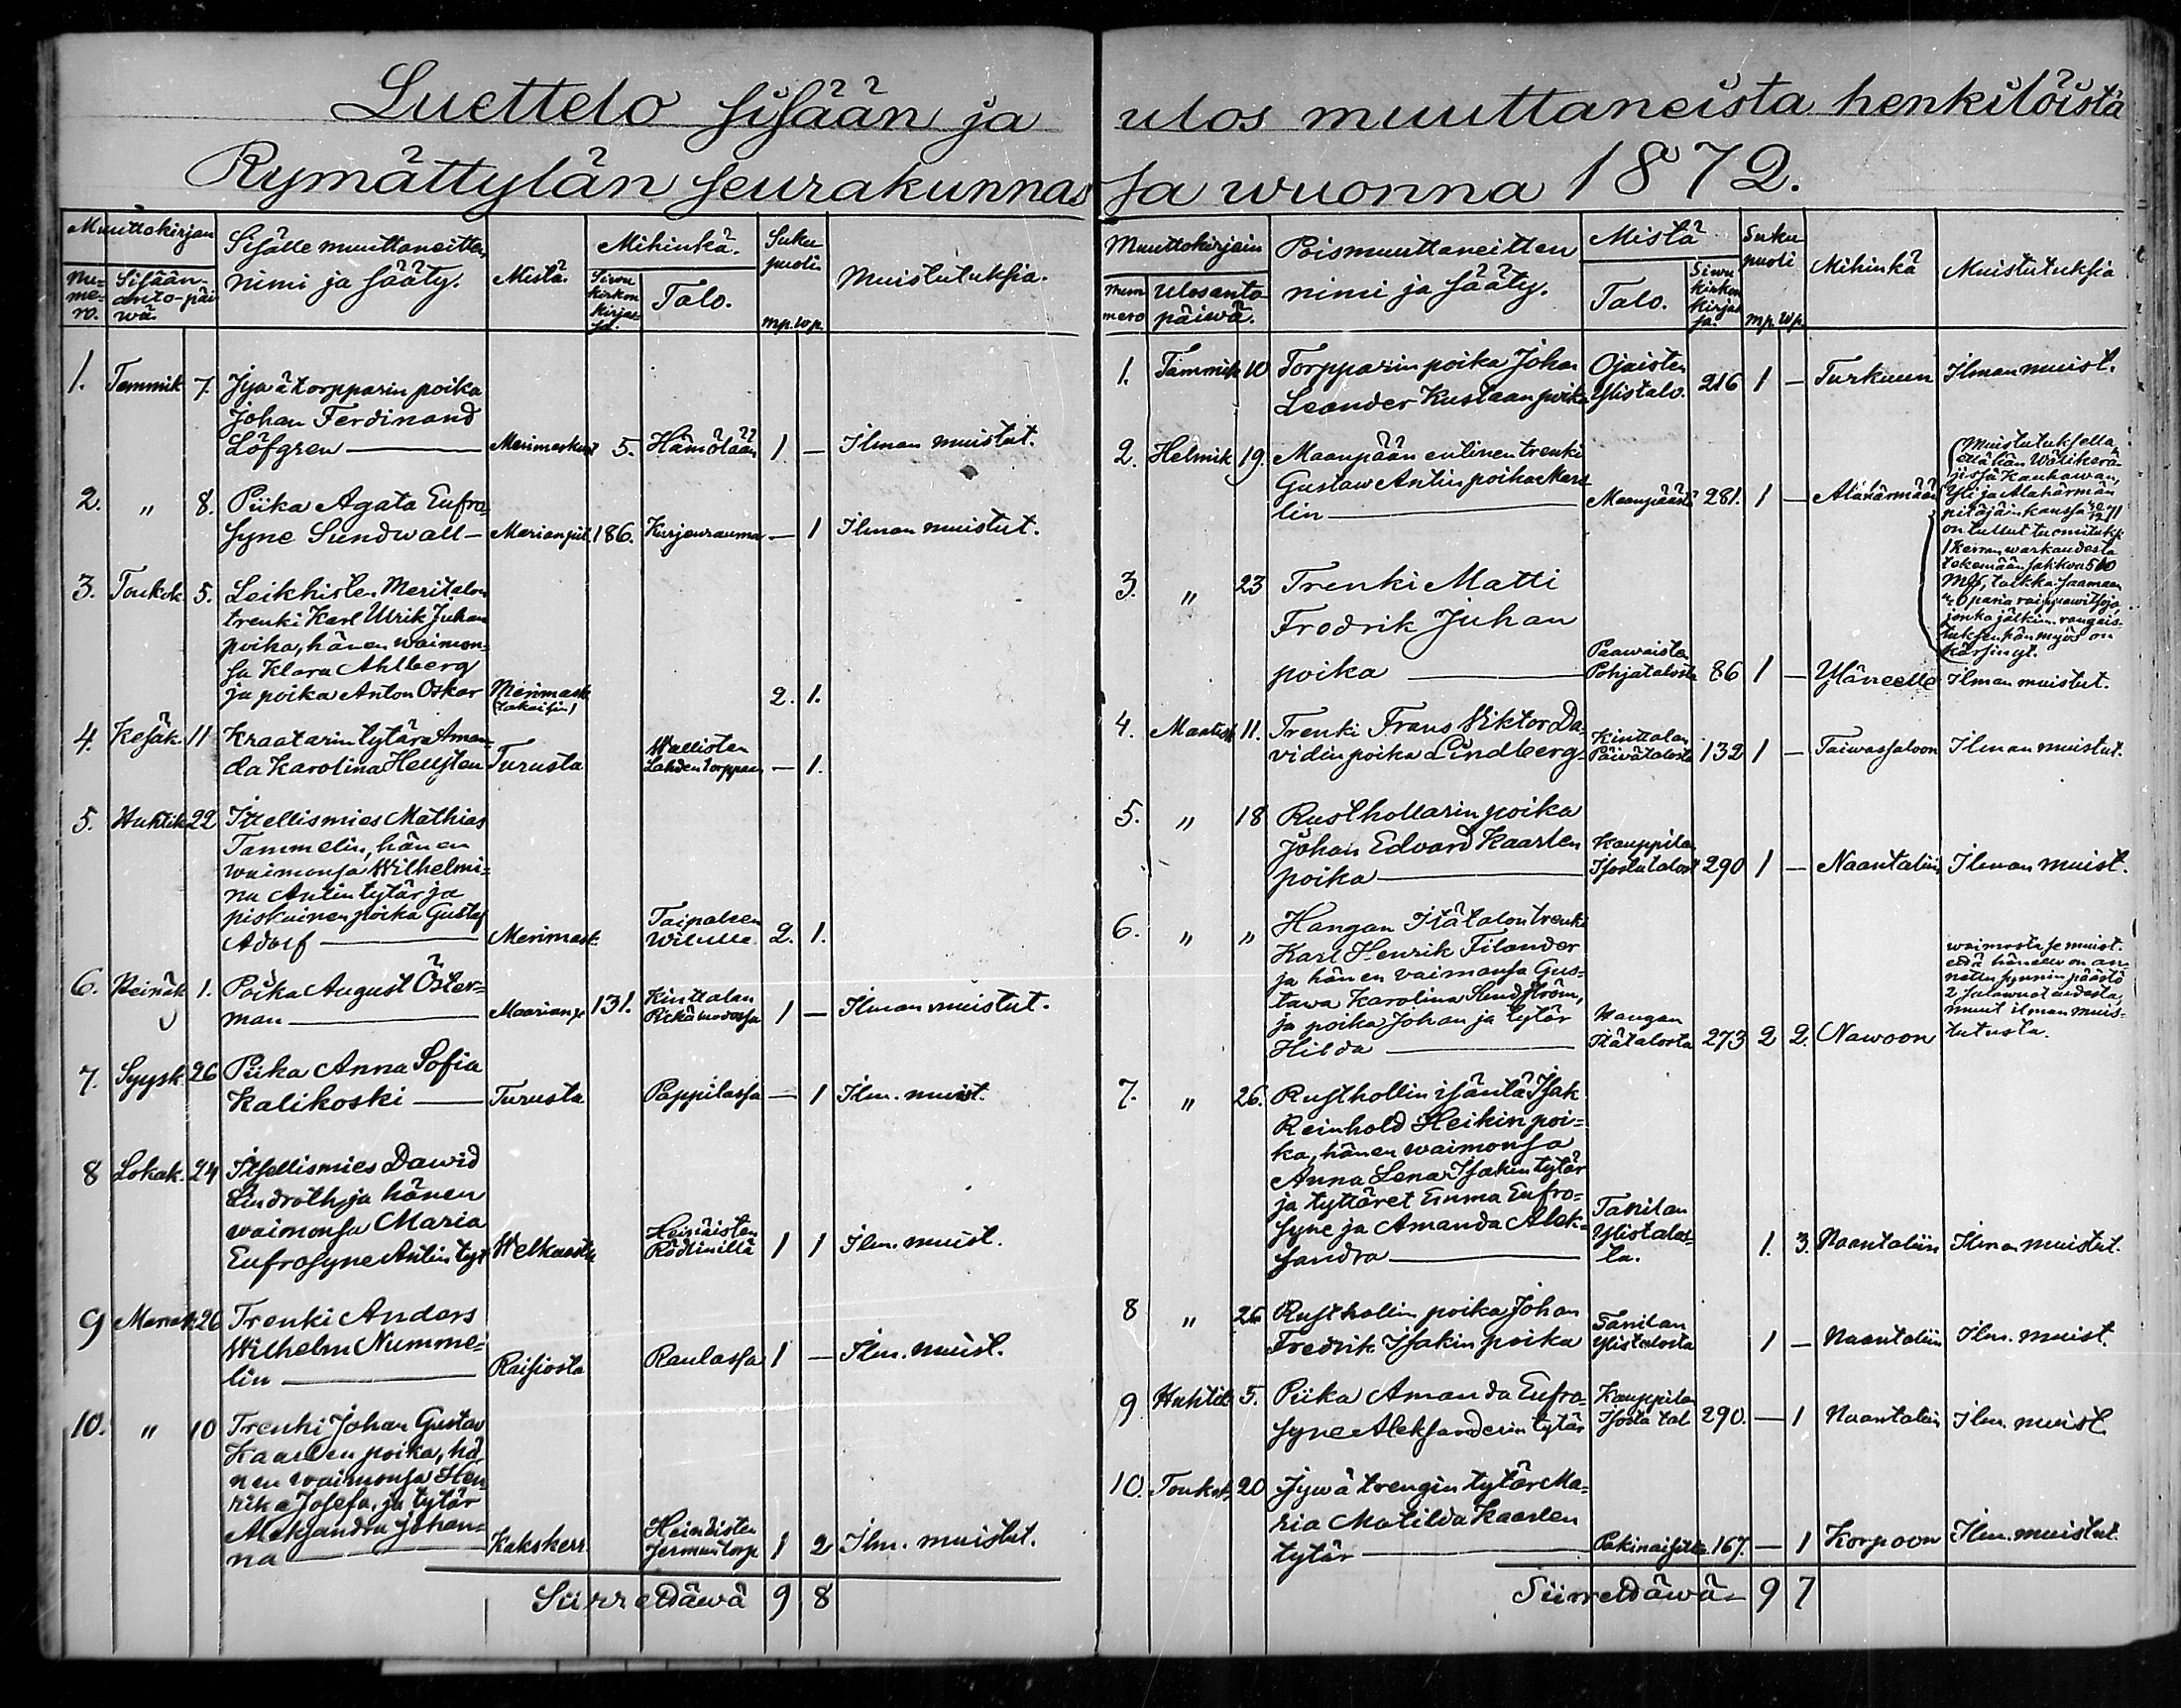 Luettelo sisään ja ulos muuttaneista henkilöistä
Rymättylän seurakunnassa wuonna 1872.
Muuttokirjan
Nu=
me=
ro.
Sisään-
anto-päi
wä
Sisälle muuttaneitten
nimi ja sääty.
Mistä.
Mihinkä.
Siwu
kirkon
kirjas=
sa.
Talo.
Suku
puoli
mp. wp.
Muistutuksia.
1. Tammik 7. Jywätorpparin poika
Johan Ferdinand
Löfgren — Merimaskust 5. Hämölään 1 — Ilman muistut.
2. " 8. Piika Agata Eufro=
syne Sundwall — Marian pit. 186. Kurjenrauma — 1 Ilman muistut.
3. Toukok. 5. Leikkisten Meritalon
trenki Karl Ulrik Juhan
poika, hänen waimon=
sa Klara Ahlberg
ja poika Anton Oskar Merimask 2. 1.
(takaisin)
4. Kesäk. 11 Kraatarin tytär Aman=
da Karolina Hellsten Turusta Wallisten
Lahden torppaan — 1.
5. Huhtik 22 Itsellismies Mathias
Tammelin, hänen
waimonsa Wilhelmi=
na Antin tytär ja
piskuinen poika Gustaf
Adolf — Merimask. Taipaleen
2. 1.
6. Heinäk. 1. Poika August Öster=
man — Maarian p. 131. Kinttalan
1 — Ilman muistut.
7. Syysk. 26 Piika Anna Sofia
Kalikoski — Turusta Pappilassa — 1 Ilm. muist.
8 Lokak. 24 Itsellismies Dawid
Lindroth ja hänen
waimonsa Maria
Eufrosyne Antin tyt Welkuasta Heinäisten
Rödlinillä 1 1 Ilm. muist.
9 Marrask. 26 Trenki Anders
Wilhelm Numme=
lin — Raisiosta Raulassa 1 — Ilm. muist.
10. " 10 Trenki Johan Gustav
Kaarlen poika, hä
nen waimonsa Hen
rika Josefa, ja tytär
Aleksandra Johan=
na — Kakskerr. Heinäisten
Jermuntorp 1 2 Ilm. muistut.
Siirrettäwä 9 8
Muuttokirjain
Num
mero
Ulosanto
päiwä.
Poismuuttaneitten
nimi ja sääty.
Mistä
Talo.
Siwu
kirkon
kirjas
sa.
Suku
puoli
mp. wp.
Mihinkä
Muistutuksia
1. Tammik 10 Torpparin poika Johan
Leander Kustaan poika Ojaisten
Ylistalo. 216 1 — Turkuun Ilman muist.
2. Helmik 19. Maanpään entinen trenki
Gustaw Antin poika Mars
lin — Maanpäästä 281. 1 — Alahärmään
Muistutuksella,
että hän Wälikerä-
jissä Kauhawan,
Yli ja Alahärmän
pitäjäin kanssa
on tullut tuomituksi
1 kerran warkaudesta
tekemään sakkoa 560
Mk, taikka saamaan
paria raippawitsoja,
jonka jälkim. rangais-
tuksen hän myös on
kärsinyt.
3. " 23 Trenki Matti
Fredrik Juhan
poika — Paawaisten
Pohjatalosta 86 1 — Yläneelle Ilman muistut.
4. Maalisk 11. Trenki Frans Wiktor Da
vidin poika Lindberg — Kinttalan
Päivätalosta 132 1 — Taiwassaloon Ilman muistut.
5. " 18 Rusthollarin poika
Johan Edvard Kaarlen
poika — Kauppilan
Isostatalost 290 1 — Naantaliin Ilman muist.
6. " " Hangan Itätalon trenki
Karl Henrik Filander
ja hänen vaimonsa Gus=
tawa Karolina Sundström,
ja poika Johan ja tytär
Hilda — Hangan
Itätalosta 273 2 2. Nawoon
waimosta se muist.
että hänelle on an-
nettu synnin päästö
2 salawuoteudesta,
muut ilman muis-
tutusta.
7. " 26. Rusthollin isäntä Isak
Reinhold Heikin poi=
ka, hänen waimonsa
Anna Lena Isakin tytär
ja tyttäret Emma Eufro=
syne ja Amanda Alek=
sandra — Tanilan
Ylistalos=
ta. 1. 3. Naantaliin Ilman muistut.
8 " 26 Rusthollin poika Johan
Fredrik Isakin poika Tanilan
Ylistalosta 1 — Naantaliin Ilm. muist.
9 Huhtik 5. Piika Amanda Eufro=
syne Aleksanderin tytär Kauppilan
Isosta tal 290. — 1 Naantaliin Ilm. muist.
10. Toukok. 20 Jywä trengin tytär Ma=
ria Matilda Kaarlen
tytär — Pakinaisista 167. — 1 Korpoon Ilm. muistut.
Siirrettäwä — 9 7